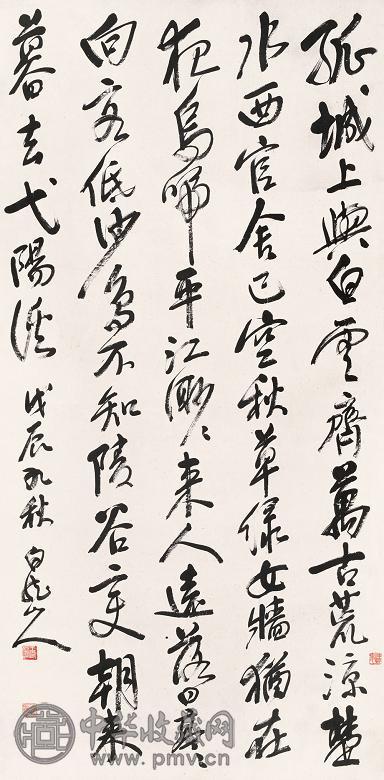 孤城上與白雲齊萬古荒涼楚
水西官舍已空秋草緑女牆猶在
夜烏啼平江渺〻來人遠落日亭〻
向客低沙鳥不知陵谷变朝来
暮去弋陽溪 戊辰九秋 白龍山人
中华收藏网